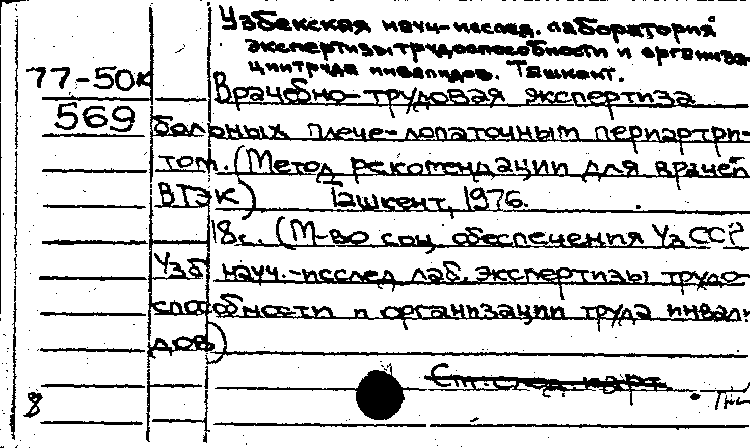 Узбекская науч-исслед. лаборатория
экспертизы трудоспособности и организа-
ции труда инвалидов. Ташкент.
77-50к
569
Врачебно-трудовая экспертиза
больных плече-лопаточным периартри-
том. (Метод рекомендации для врачей
ВТЭК) Ташкент, 1976.
18с. (М-во соц обеспечения УзССР
Узб науч.-исслед лаб. экспертизы трудо-
способности и организации труда инвали
дов)
См. след. карт.
8